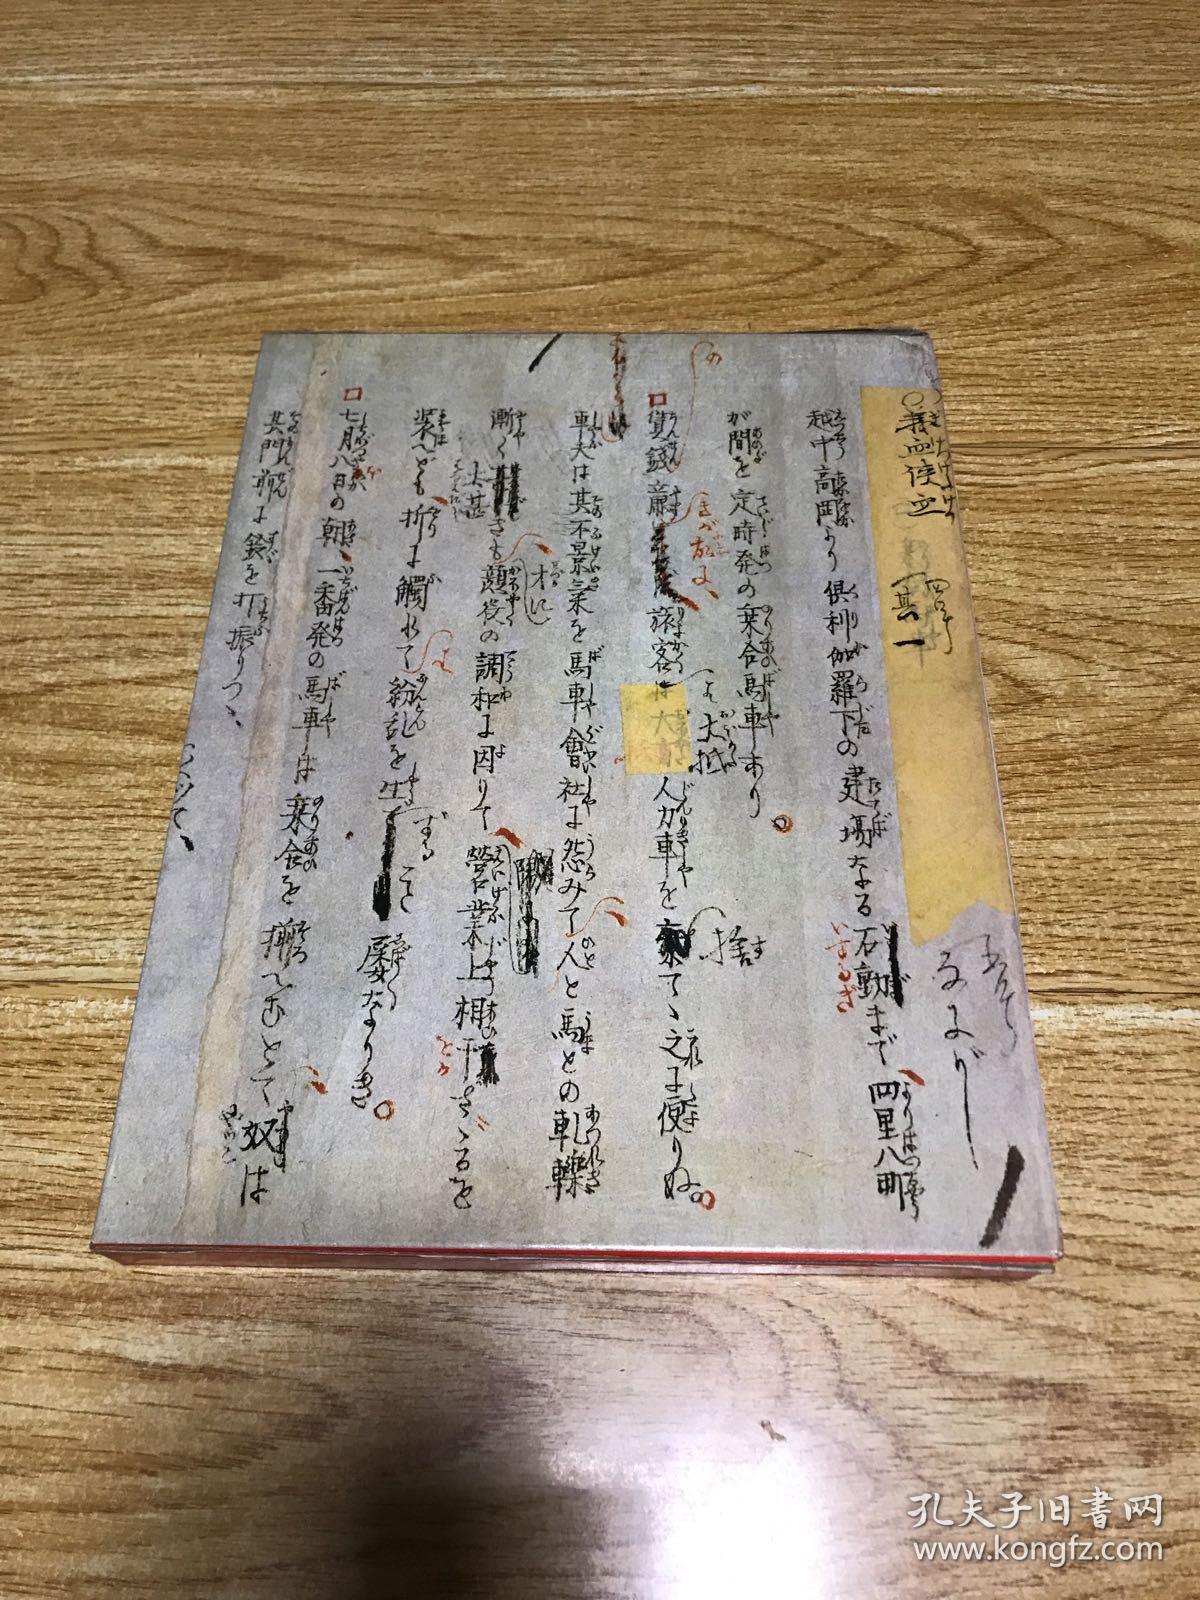 義血侠血
其一
なにがし
越中高岡より倶利伽羅下の建場なる石動まで四里八町
が間を定時発の乗合馬車あり。
賃銭
旅客は大抵人力車を捨てゝ之に便りぬ。
車夫は其不景気を馬車會社に怨みて人と馬との軋轢
漸く太甚きも顔役の調和に因りて営業上相干さゞるを
装へども折に觸れて紛乱を生ずること屡なりき。
七月八日の朝、一番発の馬車は乗合を揃へむとて奴は
其門前に鈴を打振りつゝ、
孔夫子旧书网
www.kongfz.com